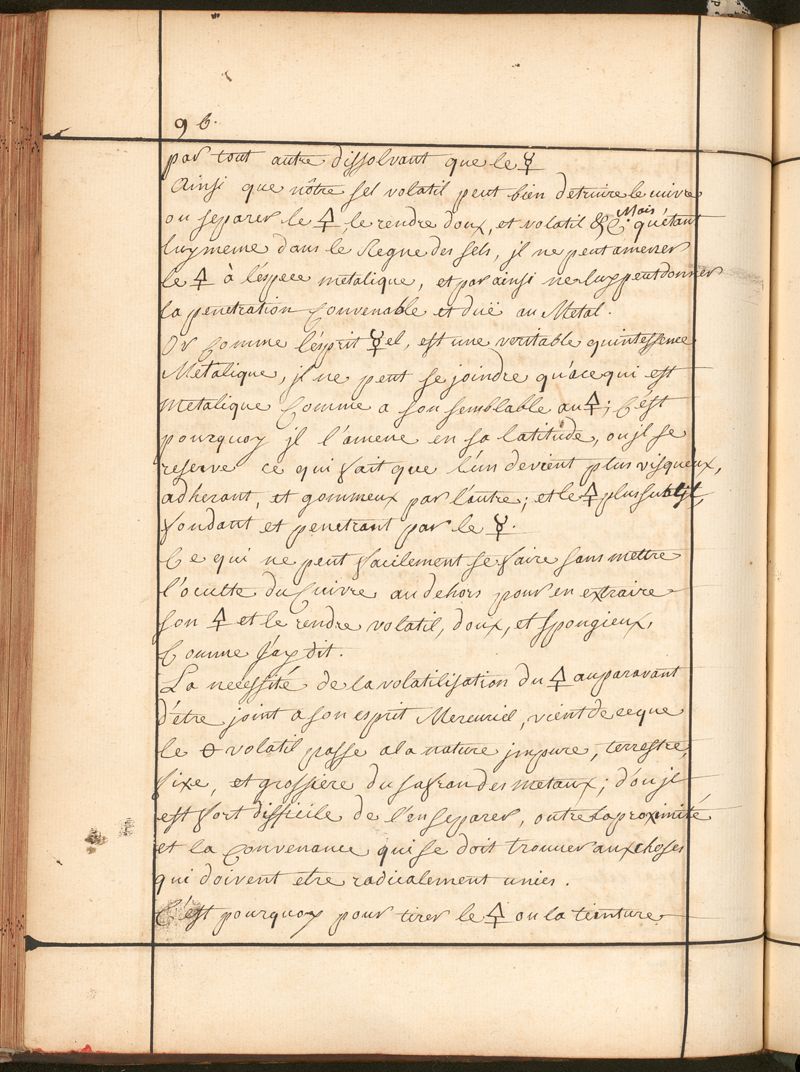 96.
par tout autre dissolvant que le ☿
Ainsi que nôtre sel volatil peut bien detruire le cuivre
ou separer le 🜍 le rendre doux, et volatil &c. Mais qu'étant
luy meme dans le Regne des sels, jl ne peut amener
le 🜍 à l'espece metalique, et par ainsi ne luy peut donner
la penetration Convenable et duë au Metal.
Or Comme l'esprit ☿el, est une veritable quintessence
Metalique, jl ne peut se joindre qu'à ce qui est
metalique Comme a son semblable au 🜍; C'est
pourquoy jl l'amene en sa latitude, ou jl se
reserve ce qui fait que l'un devient plus visqueux,
adherant, et gommeux par l'autre; et le 🜍 plus subtil,
fondant et penetrant par le ☿.
Ce qui ne peut facilement se faire sans mettre
l'occulte du Cuivre au dehors pour en extraire
son 🜍 et le rendre volatil, doux, et spongieux,
Comme j'ay dit.
La necessité de la volatilisation du 🜍 auparavant
d'etre joint a son esprit Mercuriel, vient de ce que
le 🜔 volatil passe a la nature jmpure, terrestre,
fixe, et grossiere du safran des metaux; d'ou jl
est fort difficile de l'en separer, outre la proximité
et la Convenance qui se doit trouver aux choses
qui doivent etre radicalement unies.
C'est pourquoy pour tirer le 🜍 ou la teinture